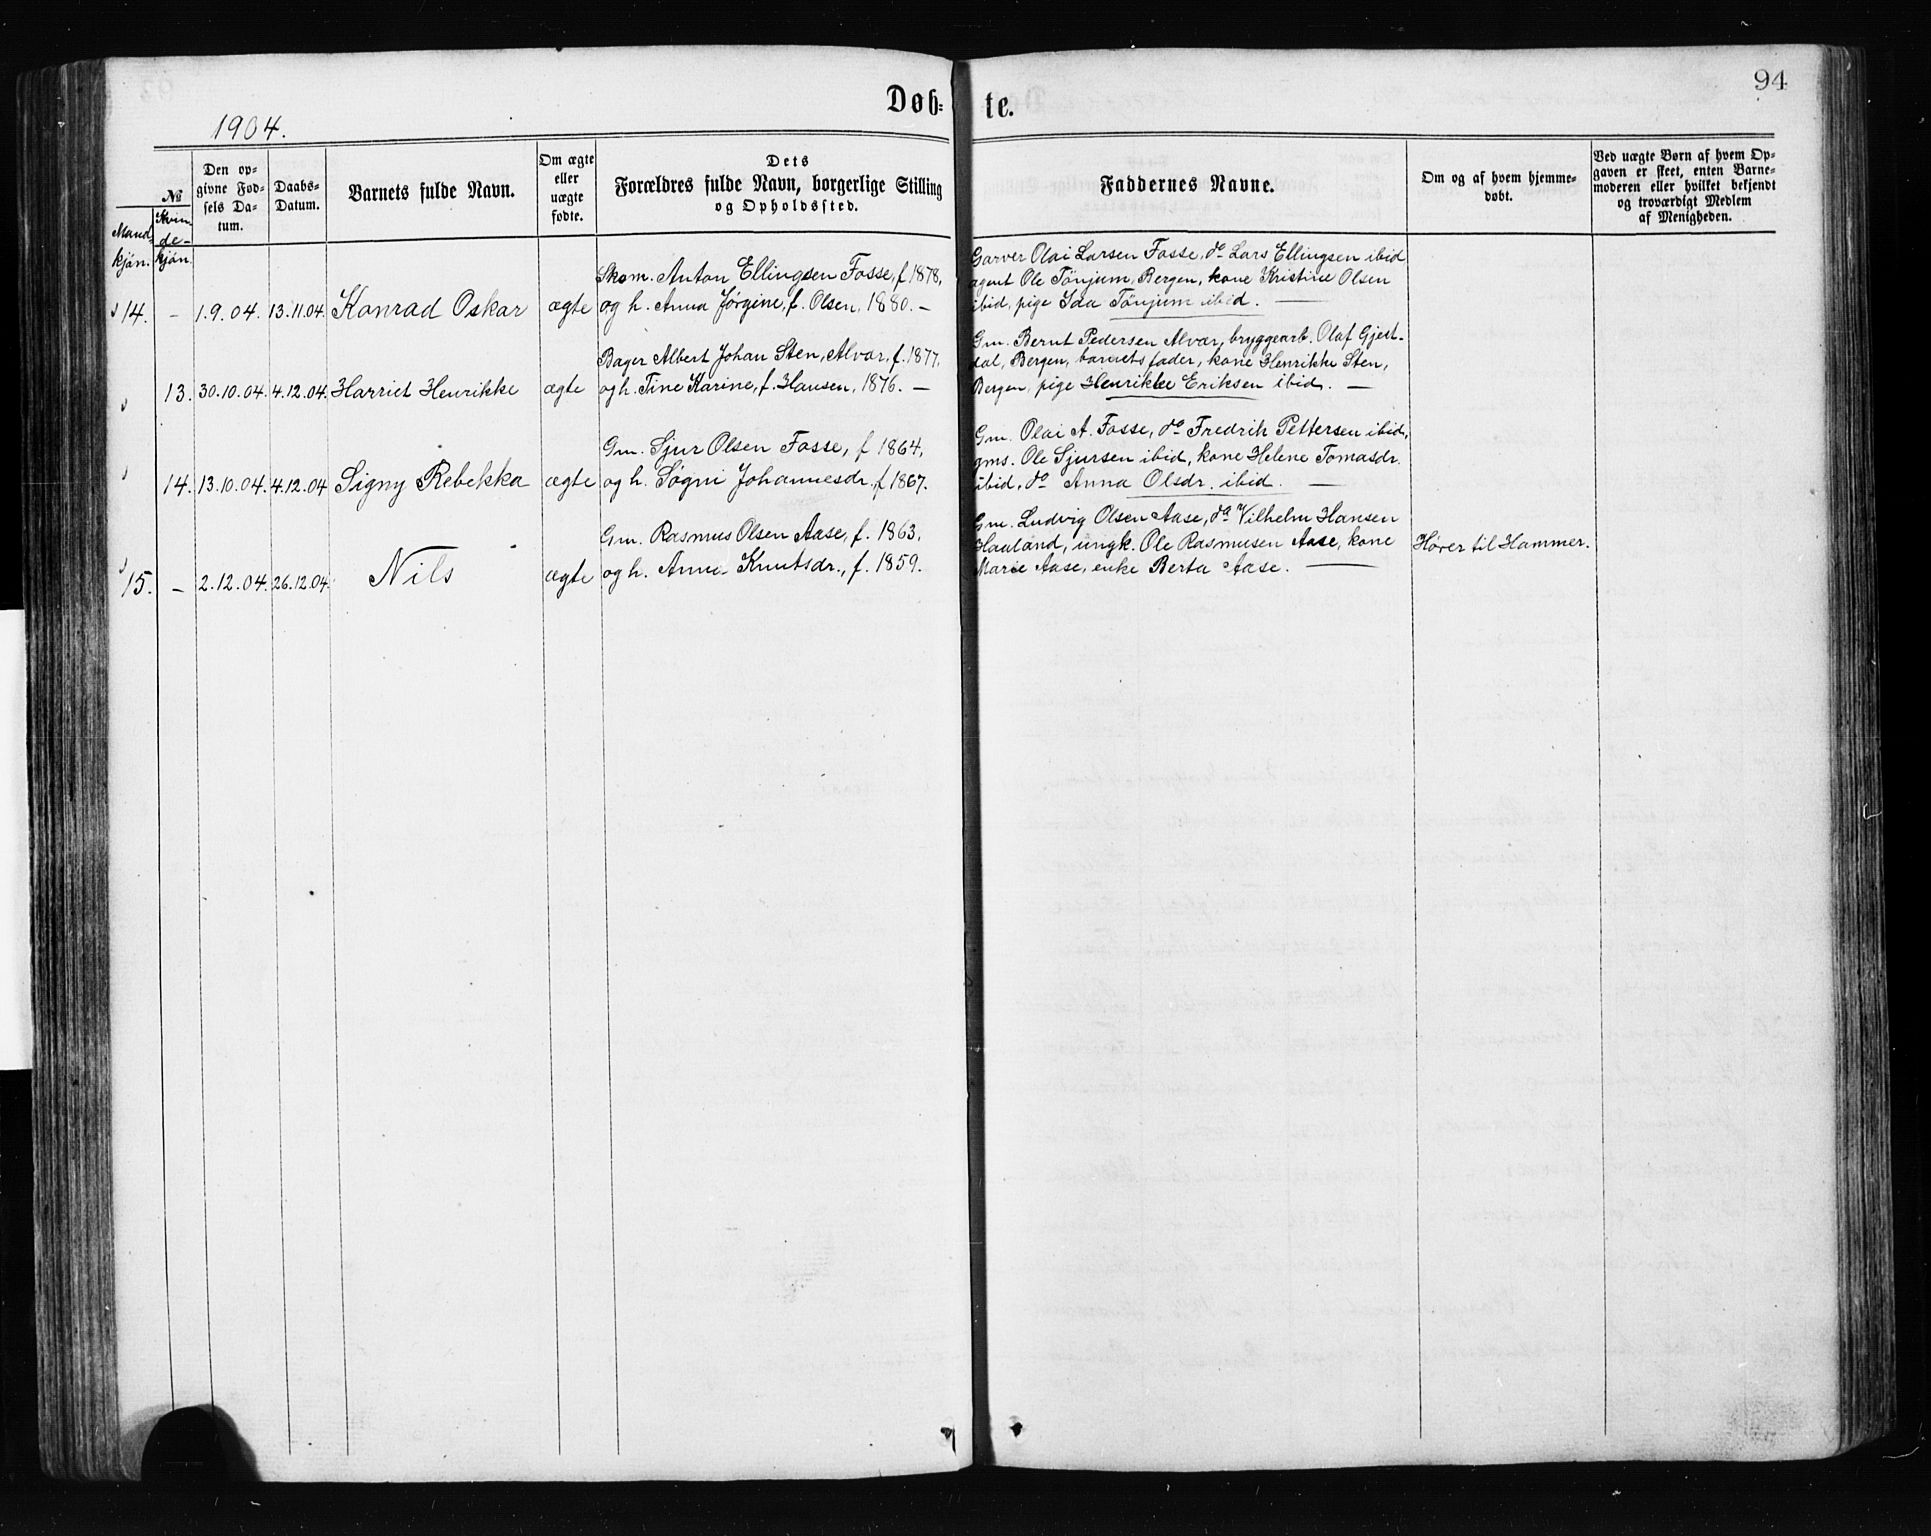 94
Døb-te.
1904.
№
Mand-kjøn.
Kvin-de-kjøn.
Den op-
givne Fød-
sels Da-
tum.
Daabs-
Datum.
Barnets fulde Navn.
Om ægte
eller
uægte
fødte.
Dets
Forældres fulde Navn, borgerlige Stilling
og Opholdssted.
Faddernes Navne.
Om og af hvem hjemme-
døbt.
Ved uægte Børn af hvem Op-
gaven er skeet, enten Barne-
moderen eller hvilket bekjendt
og troværdigt Medlem
af Menigheden.
14. – 1.9.04. 13.11.04. Konrad Oskar ægte
Skom. Anton Ellingsen Fosse, f. 1878,
og h. Anna Jørgine, f. Olsen, 1880. –
Garver Olai Larsen Fosse, do Lars Ellingsen ibid
agent Ole Tönjum, Bergen, kone Kristine Olsen
ibid, pige Ida Tönjum ibid. —
13. 30.10.04. 4.12.04. Harriet Henrikke ægte
Bager Albert Johan Sten, Alvar, f. 1877,
og h. Tine Karine, f. Hansen, 1876. —
Gm. Bernt Pedersen Alvar, bryggearb. Olaf Gjest-
dal, Bergen, barnets fader, kone Henrikke Sten,
Bergen, pige Henrikke Eriksen ibid. —
14. 13.10.04. 4.12.04 Signy Rebekka ægte
Gm. Sjur Olsen Fosse, f 1864,
og h. Søgni Johannesdr., f 1867.
Gm. Olai A. Fosse, do Fredrik Pettersen ibid,
gms. Ole Sjursen ibid, kone Helene Tomasdr.
ibid, do Anna Olsdr. ibid. —
15. – 2.12.04. 26.12.04. Nils ægte
Gm. Rasmus Olsen Aase, f. 1863,
og h. Anna Knutsdr., f. 1859.
Gm. Ludvig Olsen Aase, do Vilhelm Hansen
Hauland, ungk. Ole Rasmusen Aase, kone
Marie Aase, enke Berta Aase. —
Hører til Hammer.